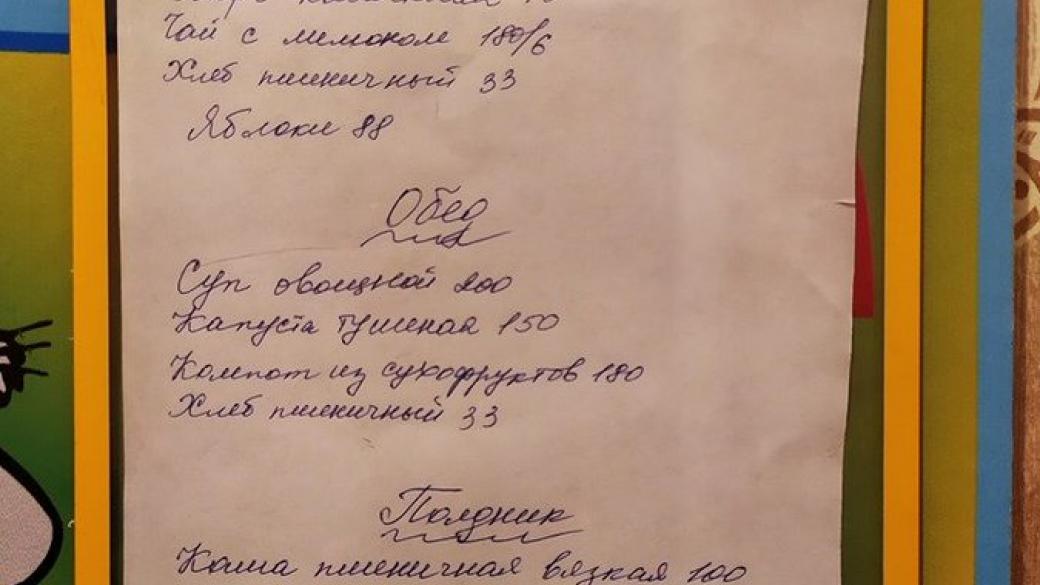 Чай с лимоном 180/6
Хлеб пшеничный 33
Яблоки 88
Обед
Суп овощной 200
Капуста тушеная 150
Компот из сухофруктов 180
Хлеб пшеничный 33
Полдник
Каша пшеничная вязкая 100